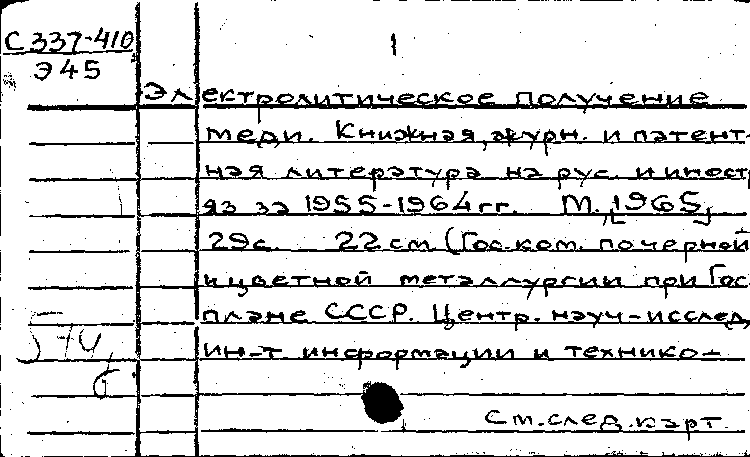 1
С337-410
Э45
Электролитическое получение
меди. Книжная, журн. и патент-
ная литература на рус. и иност
яз за 1955-1964гг. М., [1965]
29с. 22см (Гос.ком. по черной
и цветной металлургии при Гос
плане СССР. Центр. науч-исслед.
ин-т информации и технико-
См.след.карт.